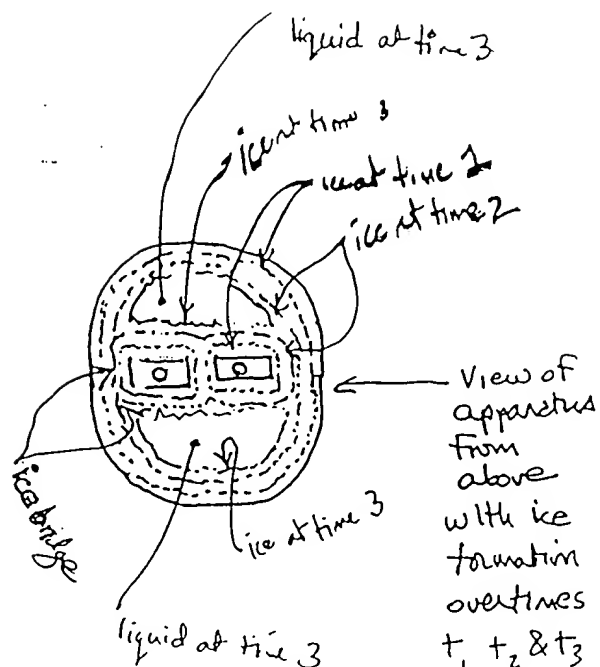 liquid at time 3
ice at time 3
ice at time 1
ice at time 2
View of
apparatus
from
above
with ice
formation
over times
t1, t2 & t3
ice bridge
ice at time 3
liquid at time 3